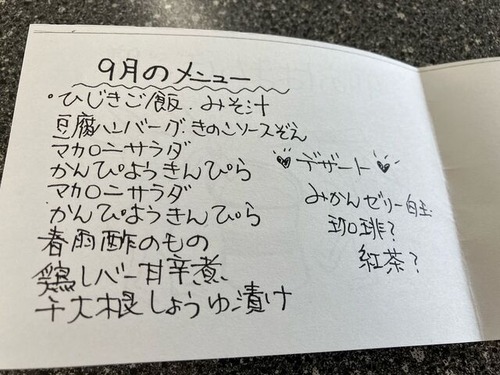 9月のメニュー
・ひじきご飯.みそ汁
豆腐ハンバーグ.きのこソースぞえ
マカロニサラダ
かんぴょうきんぴら
マカロニサラダ
かんぴょうきんぴら
春雨酢のもの
鶏レバー甘辛煮
干大根しょうゆ漬け
デザート
みかんゼリー白玉
珈琲?
紅茶?